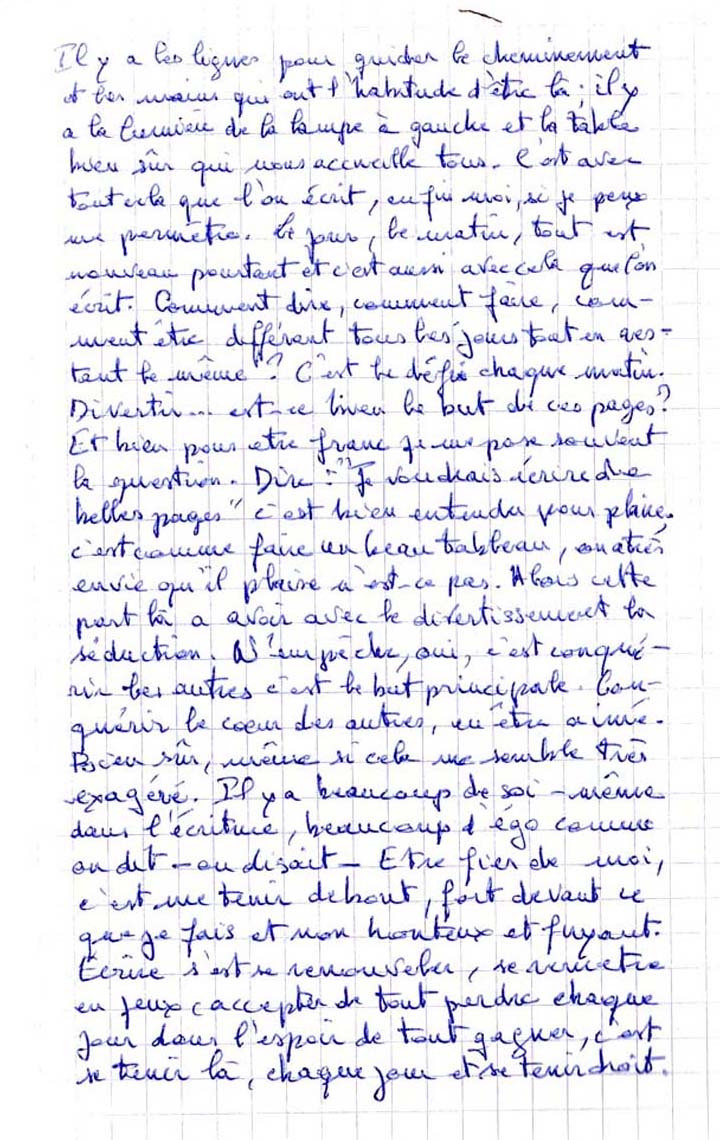 Il y a les lignes pour guider le cheminement
et les mains qui ont l'habitude d'être là ; il y
a la lumière de la lampe à gauche et la table
bien sûr qui nous accueille tous. C'est avec
tout cela que l'on écrit, enfin moi, si je peux
me permettre. Le jour, le matin, tout est
nouveau pourtant et c'est aussi avec cela que l'on
écrit. Comment dire, comment faire, com-
ment être différent tous les jours tout en res-
tant le même ? C'est le défi chaque matin.
Divertir... est-ce bien le but de ces pages ?
Et bien pour etre franc je me pose souvent
la question. Dire : "Je voudrais écrire de
belles pages" c'est bien entendu pour plaire.
c'est comme faire un beau tableau, on a très
envie qu'il plaise n'est-ce pas. Alors cette
part là a avoir avec le divertissement la
séduction. N'empêche, oui, c'est conqué-
rir les autres c'est le but principale. Con-
quérir le coeur des autres, en être aimé.
Bien sûr, même si cela me semble très
exagéré. Il y a beaucoup de soi-même
dans l'écriture, beaucoup d'égo comme
on dit - ou disait - Etre fier de moi,
c'est me tenir debout, fort devant ce
que je fais et non honteux et fuyant.
Écrire s'est se renouveler, se remettre
en jeux accepter de tout perdre chaque
jour dans l'espoir de tout gagner, c'est
se tenir là, chaque jour et se tenir droit.